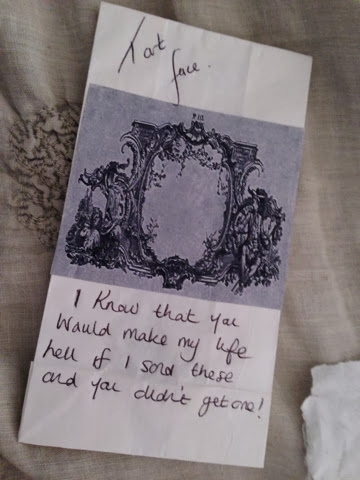 Tart
face.
I Know that you
Would make my life
hell if I sold these
and you didn't get one!